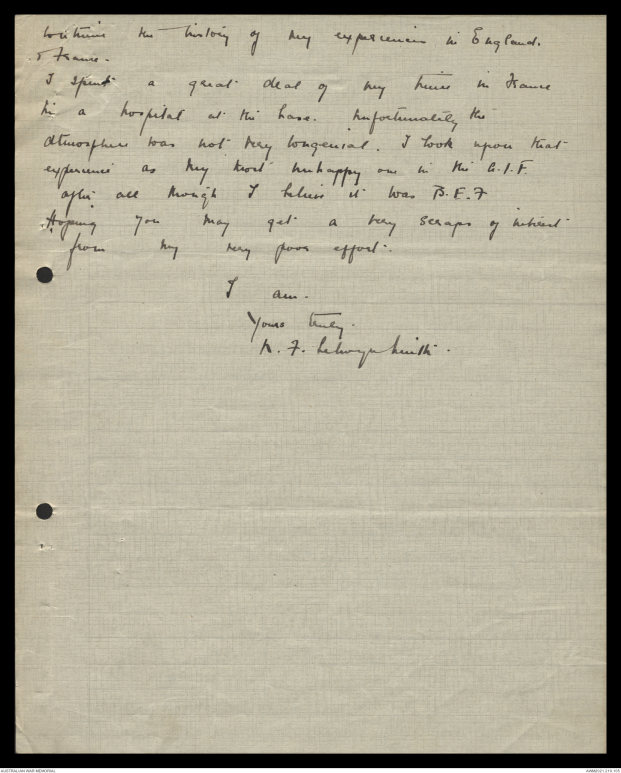 continue the history of my experiences in England.
& France.
I spent a great deal of my time in France
in a hospital at the base. Unfortunately the
atmosphere was not very congenial. I look upon that
experience as my most unhappy one in the A.I.F.
after all though I believe it was B.E.F
Hoping you may get a very scraps of interest
from my very poor effort.
I am.
Yours truly.
N. F. Selwyn Smith.
AUSTRALIAN WAR MEMORIAL